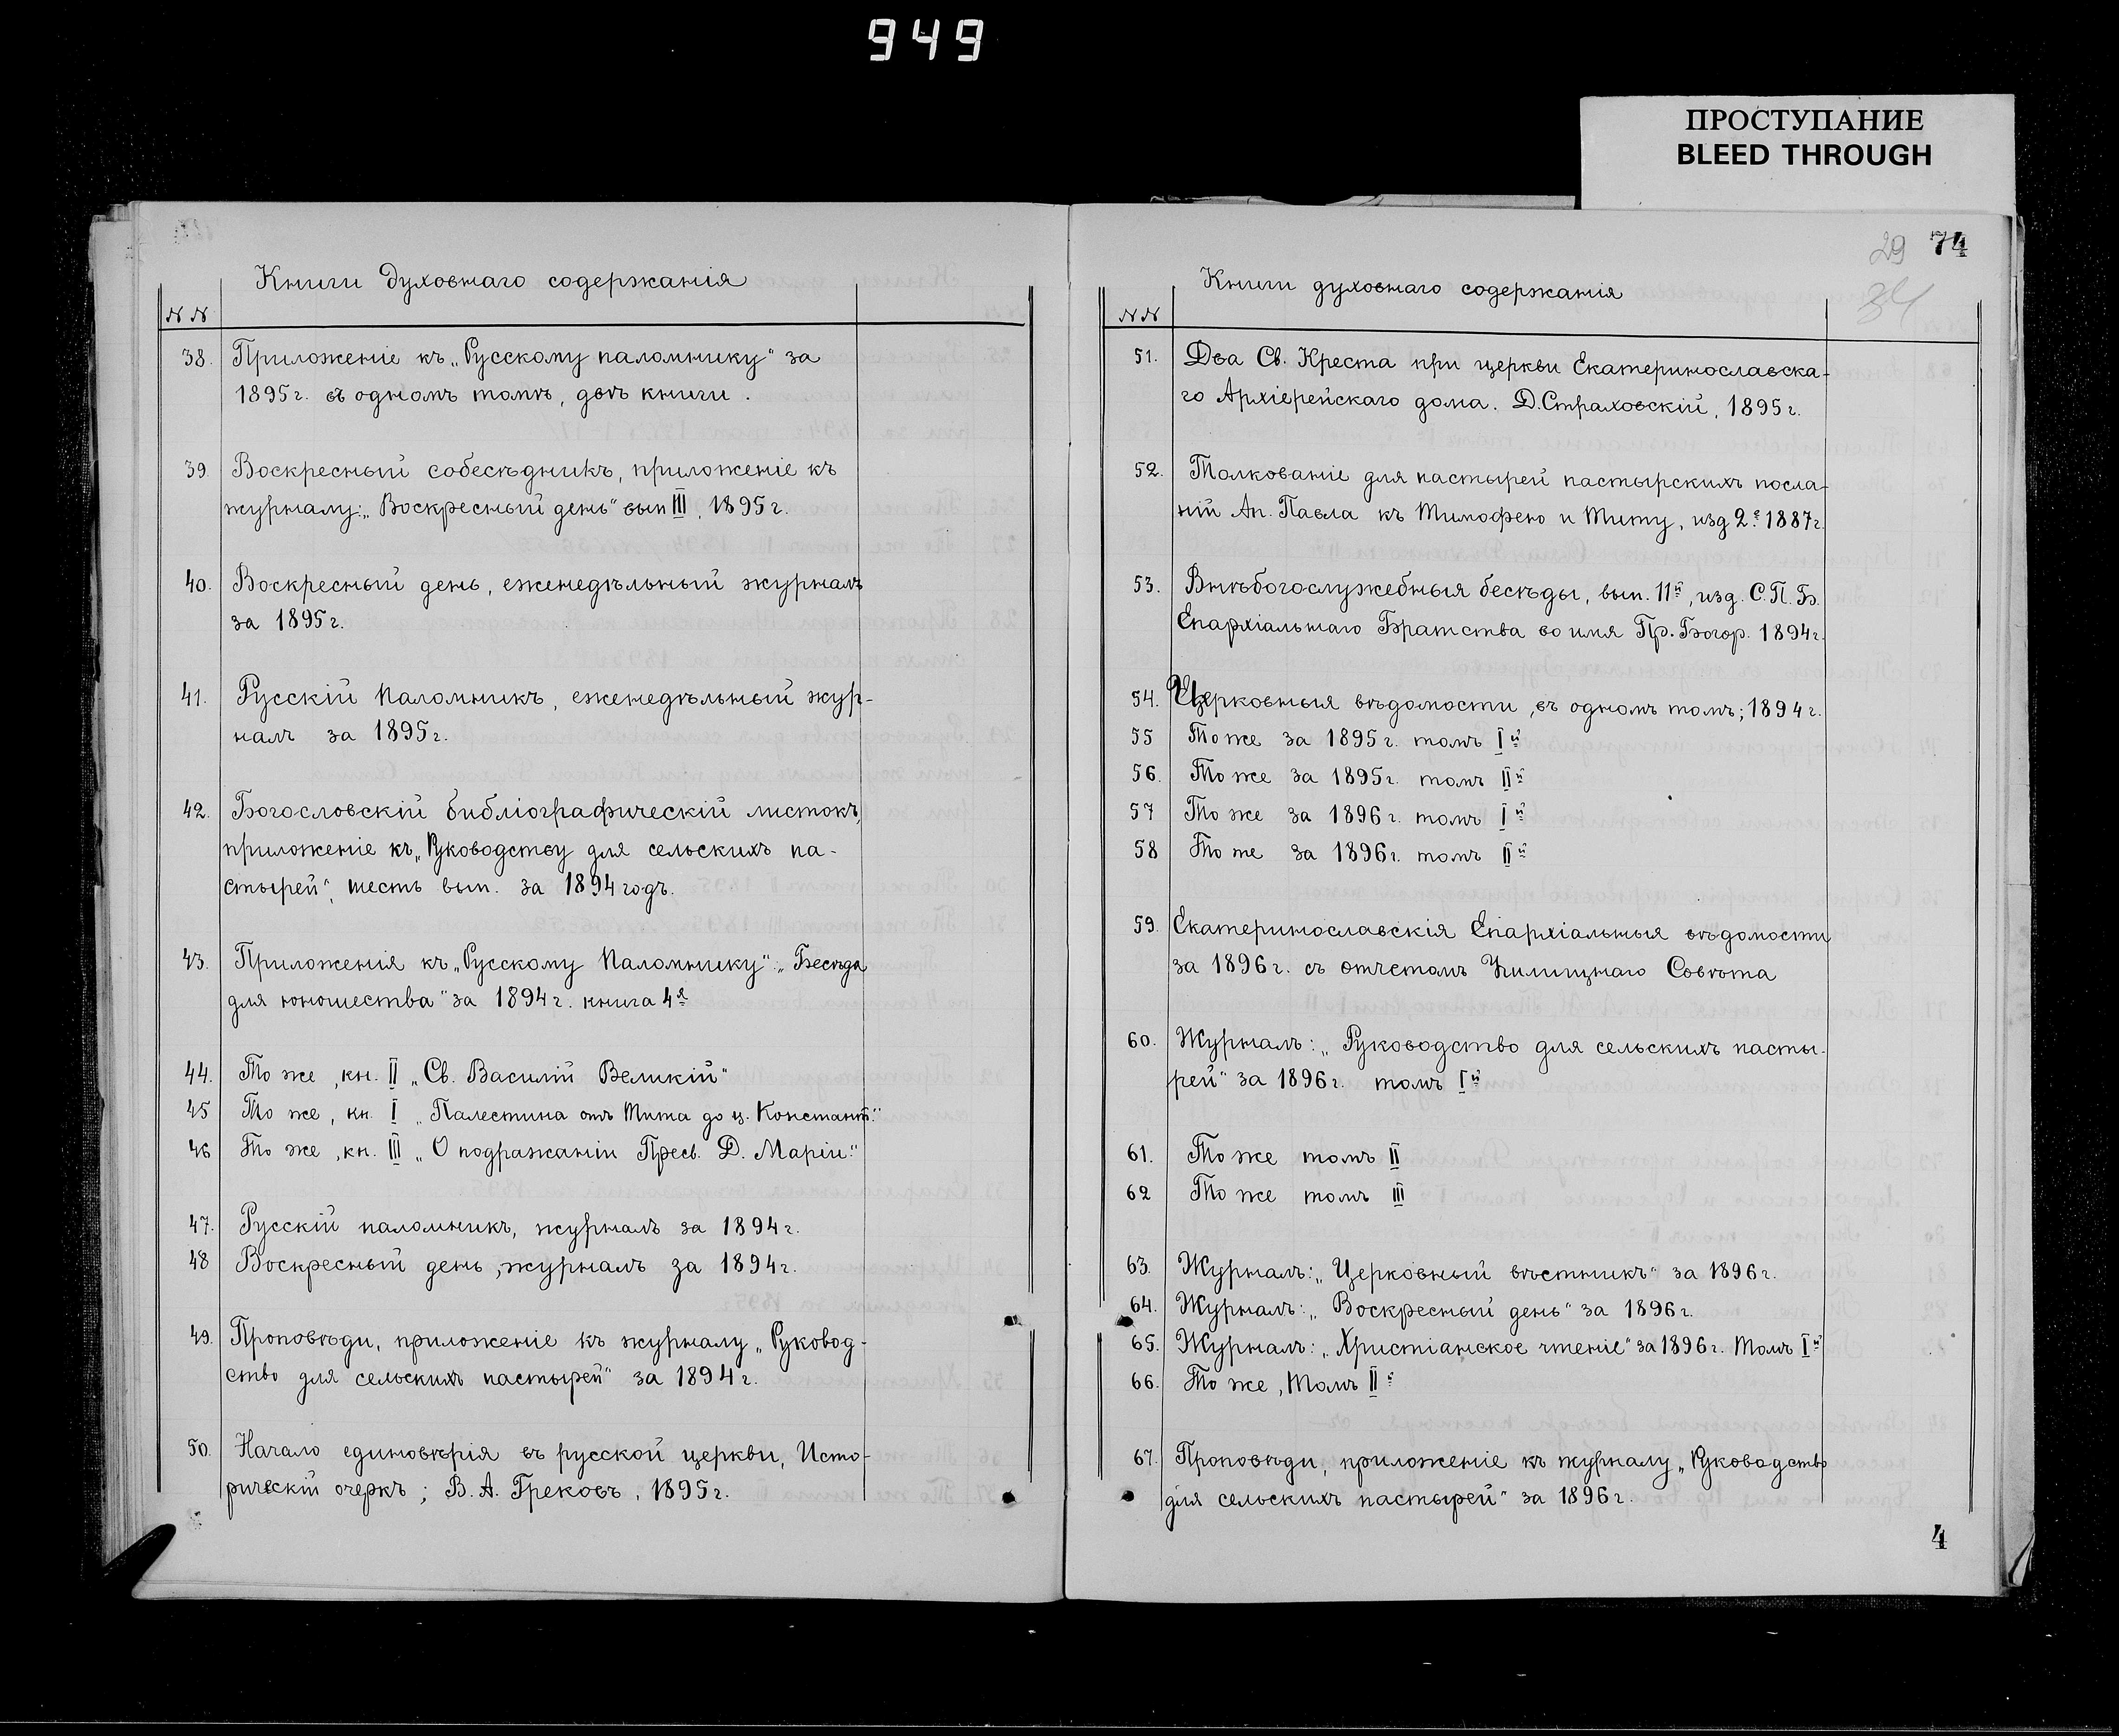 949
ПРОСТУПАНИЕ
BLEED THROUGH
Книги духовнаго содержанія
№№
38. Приложеніе къ „Русскому паломнику“ за
1895 г. въ одномъ томѣ, двѣ книги.
39 Воскресный собесѣдникъ, приложеніе къ
журналу: „Воскресный день“ вып III, 1895 г.
40. Воскресный день, еженедѣльный журналъ
за 1895 г.
41. Русскій Паломникъ, еженедѣльный жур-
налъ за 1895 г.
42. Богословскій библіографическій листокъ,
приложеніе къ „Руководству для сельскихъ па-
стырей“, шесть вып. за 1894 годъ.
43. Приложенія къ „Русскому Паломнику“: „Бесѣда
для юношества“ за 1894 г. книга 4я
44. То же, кн. II „Св. Василій Великій“
45 То же, кн. I „Палестина отъ Тита до ц. Констант.“
46 То же, кн. III „О подражаніи Пресв. Д. Маріи.“
47. Русскій паломникъ, журналъ за 1894 г.
48 Воскресный день, журналъ за 1894 г.
49. Проповѣди, приложеніе къ журналу „Руковод-
ство для сельскихъ пастырей“ за 1894 г.
50. Начало единовѣрія въ русской церкви, Исто-
рическій очеркъ; В. А. Грековъ, 1895 г.
29 74
34
Книги духовнаго содержанія
№№
51. Два Св. Креста при церкви Екатеринославска-
го Архіерейскаго дома. Д. Страховскій, 1895 г.
52. Толкованіе для пастырей пастырскихъ посла-
ній Ап. Павла къ Тимофею и Титу, изд 2е 1887 г.
53. Внѣбогослужебныя бесѣды, вып. 11й, изд. С.П.Б.
Епархіальнаго Братства во имя Пр. Богор. 1894 г.
54. Церковныя вѣдомости, въ одномъ томѣ; 1894 г.
55 То же за 1895 г. томъ Iй
56. То же за 1895 г. томъ IIй
57 То же за 1896 г. томъ Iй
58 То же за 1896 г. томъ IIй
59. Екатеринославскія Епархіальныя вѣдомости
за 1896 г. съ отчетомъ Училищнаго Совѣта
60. Журналъ: „Руководство для сельскихъ пасты-
рей“ за 1896 г. томъ Iй
61. То же томъ II
62 То же томъ III
63. Журналъ: „Церковный вѣстникъ“ за 1896 г.
64. Журналъ: „Воскресный день“ за 1896 г.
65. Журналъ: „Христіанское чтеніе“ за 1896 г. Томъ Iй
66. То же, Томъ IIй
67. Проповѣди, приложеніе къ журналу „Руководство
для сельскихъ пастырей“ за 1896 г.
4